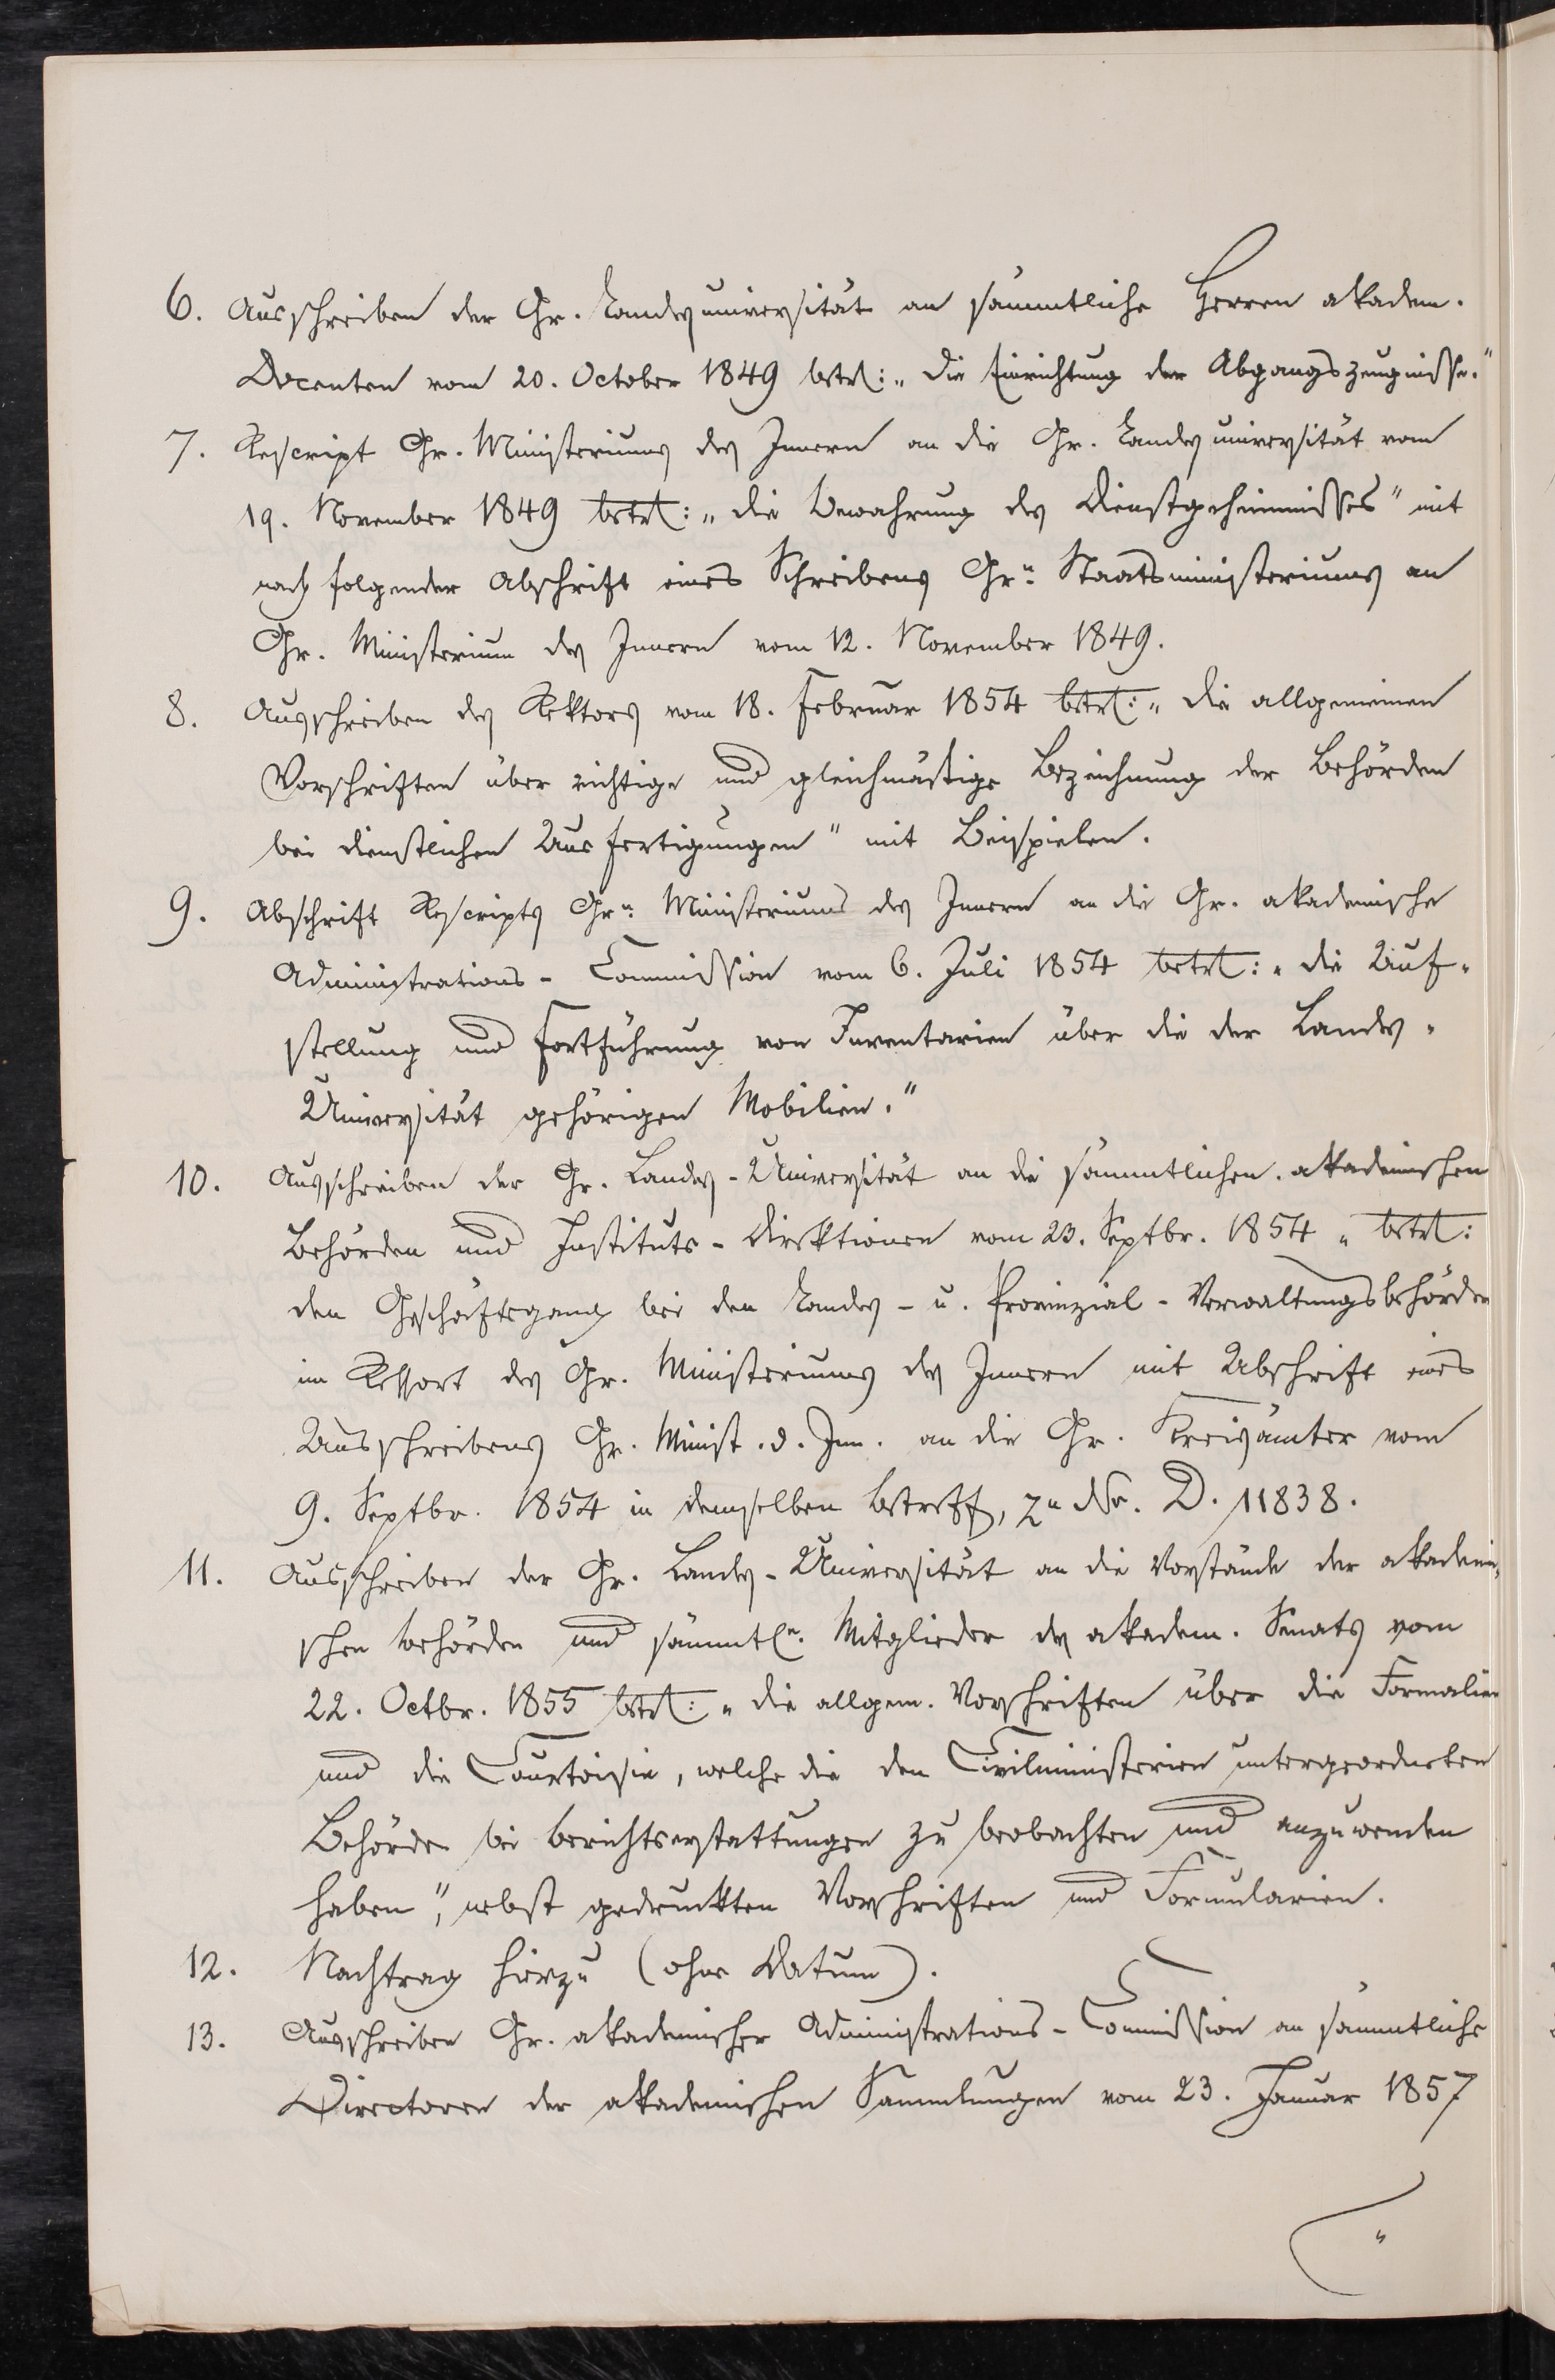 6. Ausschreiben der Gr. Landesuniversität an sämmtliche Herren akadem.
Docenten vom 20. October 1849 betr.: „die Einrichtung der Abgangszeugnisse."
7. Rescript Gr. Ministeriums des Innern an die Gr. Landesuniversität vom
19. November 1849 betr.: „die Bewahrung des Dienstgeheimnisses" mit
nachfolgender Abschrift eines Schreibens Grn. Staatsministeriums an
Gr. Ministerium des Innern vom 12. November 1849.
8. Ausschreiben des Rektors vom 18. Februar 1854 betr.: „die allgemeinen
Vorschriften über richtige und gleichmäßige Bezeichnung der Behörden
bei dienstlichen Ausfertigungen" mit Beispielen.
9. Abschrift Rescripts Grn. Ministeriums des Innern an die Gr. akademische
Administrations-Commission vom 6. Juli 1854 betr.: „die Auf-
stellung und Fortführung von Inventarien über die der Landes-
Universität gehörigen Mobilien."
10. Ausschreiben der Gr. Landes-Universität an die sämmtlichen akademischen
Behörden und Instituts-Direktionen vom 23. Septbr. 1854 „betr.:
den Geschäftsgang bei den Landes- u. Provinzial-Verwaltungsbehörden
im Ressort des Gr. Ministeriums des Innern mit Abschrift eines
Ausschreibens Gr. Minist. d. Inn. an die Gr. Kreisämter vom
9. Septbr. 1854 in demselben Betreff, zu Nr. D. 11838.
11. Ausschreiben der Gr. Landes-Universität an die Vorstände der akademi-
schen Behörden und sämmtln. Mitglieder des akadem. Senats vom
22. Octbr. 1855 betr.: „die allgem. Vorschriften über die Formalien
und die Courtoisie, welche die den Civilministerien untergeordneten
Behörden bei Berichtserstattungen zu beobachten und anzuwenden
haben", nebst gedruckten Vorschriften und Formularien.
12. Nachtrag hierzu (ohne Datum).
13. Ausschreiben Gr. akademischer Administrations-Commission an sämmtliche
Directoren der akademischen Sammlungen vom 23. Januar 1857